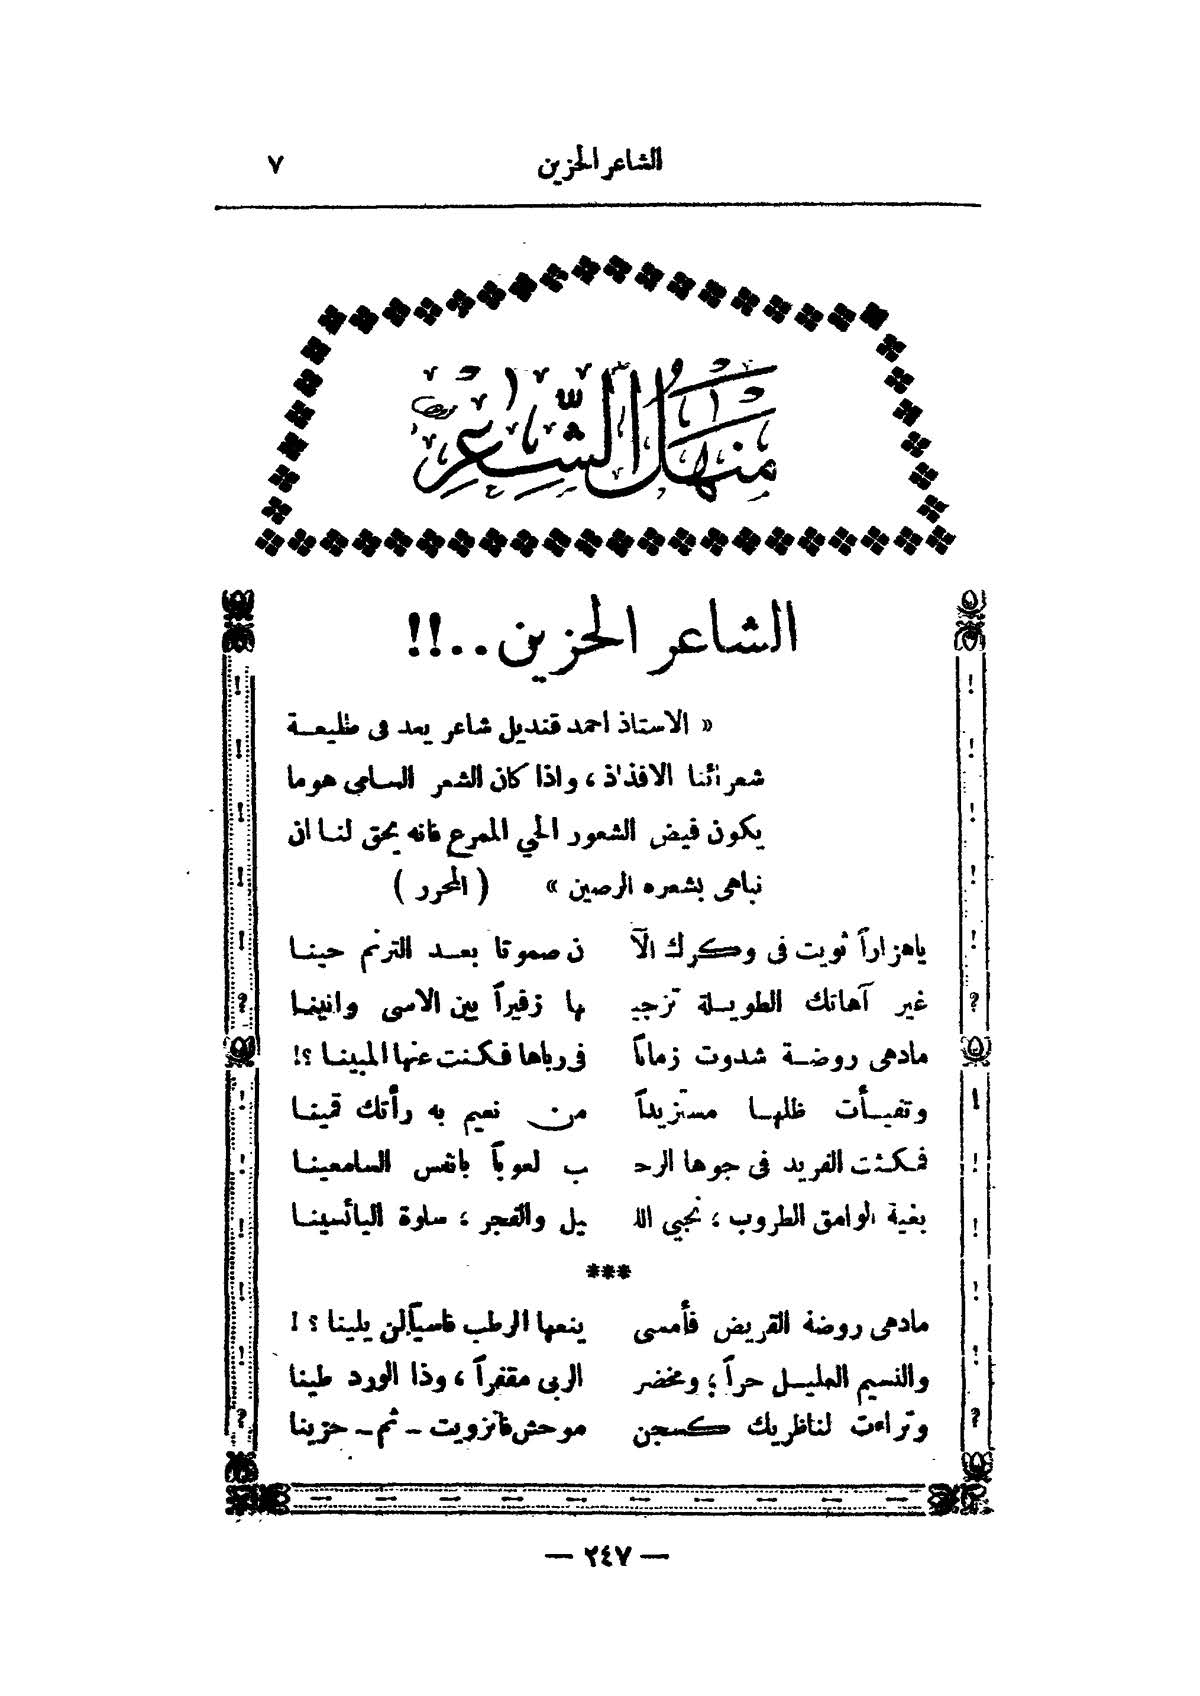 الشاعر الحزين ٧
منهل الشاعر
الشاعر الحزين..!!
« الاستاذ احمد قنديل شاعر يعد فى طليعـة
شعرائنا الافذاذ ، واذا كان الشعر السامى هوما
يكون فيض الشعور الحي الممرع فانه يحق لنـا ان
نباهى بشعره الرصين » ( المحرر )
ياهزاراً ثويت فى وكرك الآ ن صموتا بعـد الترنم حينـا
غير آهاتك الطويـلة تزجيـ ها زفيراً بين الاسى وانينـا
مادهى روضـة شدوت زماناً فى رباها فـكـنت عنها المبينـا ؟!
وتفيـأت ظلهـا مستزيداً من نعيم به رأتك قمينـا
فمكـثت الفريد فى جوها الرحـ ب لعوباً بانفس السامعينـا
بغية الوامق الطروب ؛ نجيي اللـ يل والفجر ؛ سلوة اليائسينـا
***
مادهى روضة القريض فأمسى ينعها الرطب قاسياً لن يلينا ؟ !
والنسيم العليـل حراً ؛ ومخضر الربى مقفراً ، وذا الورد طينا
وتراءت لناظريك كسجن موحش فانزويت - ثم - حزينا
— ٢٤٧ —